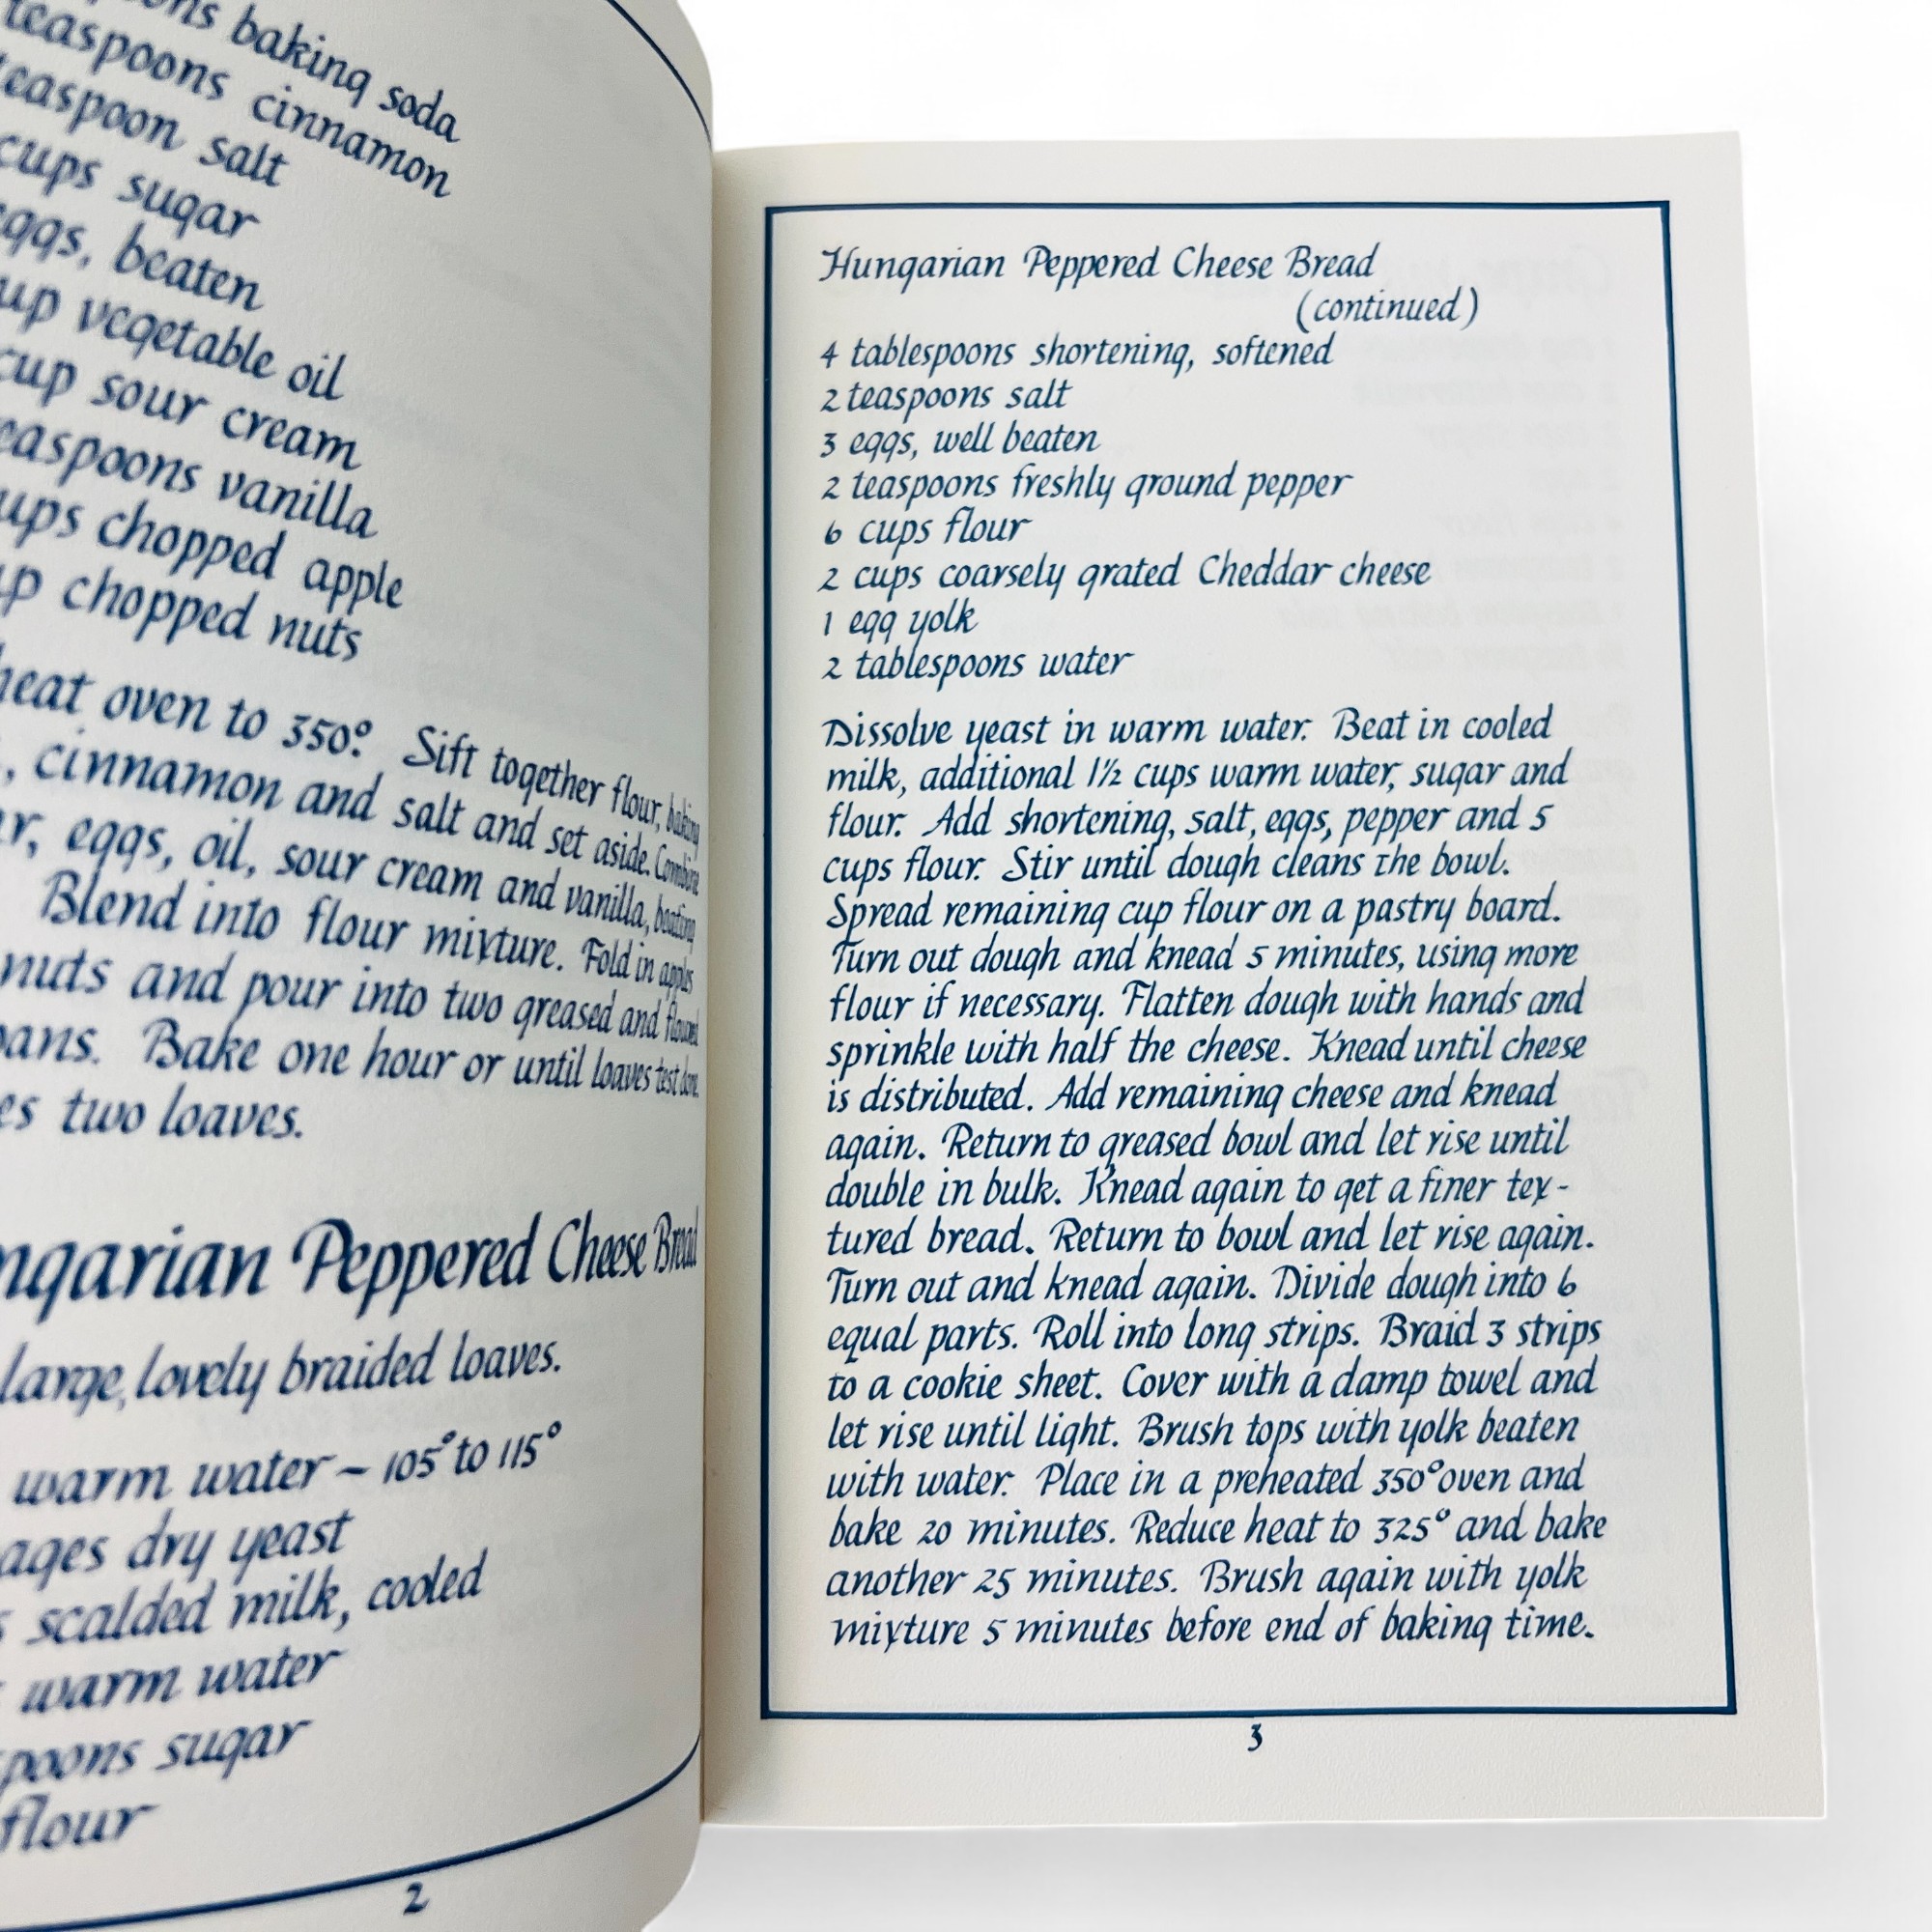 baking soda
teaspoons cinnamon
teaspoon salt
cups sugar
eggs, beaten
cup vegetable oil
cup sour cream
teaspoons vanilla
cups chopped apple
chopped nuts
heat oven to 350°. Sift together flour, baking
, cinnamon and salt and set aside. Combine
eggs, oil, sour cream and vanilla, beating
Blend into flour mixture. Fold in apples
nuts and pour into two greased and floured
pans. Bake one hour or until loaves test done.
two loaves.
ngarian Peppered Cheese Bread
large, lovely braided loaves.
warm water – 105° to 115°
ages dry yeast
scalded milk, cooled
warm water
spoons sugar
flour
2
Hungarian Peppered Cheese Bread
(continued)
4 tablespoons shortening, softened
2 teaspoons salt
3 eggs, well beaten
2 teaspoons freshly ground pepper
6 cups flour
2 cups coarsely grated Cheddar cheese
1 egg yolk
2 tablespoons water
Dissolve yeast in warm water. Beat in cooled
milk, additional 1½ cups warm water, sugar and
flour. Add shortening, salt, eggs, pepper and 5
cups flour. Stir until dough cleans the bowl.
Spread remaining cup flour on a pastry board.
Turn out dough and knead 5 minutes, using more
flour if necessary. Flatten dough with hands and
sprinkle with half the cheese. Knead until cheese
is distributed. Add remaining cheese and knead
again. Return to greased bowl and let rise until
double in bulk. Knead again to get a finer tex-
tured bread. Return to bowl and let rise again.
Turn out and knead again. Divide dough into 6
equal parts. Roll into long strips. Braid 3 strips
to a cookie sheet. Cover with a damp towel and
let rise until light. Brush tops with yolk beaten
with water. Place in a preheated 350° oven and
bake 20 minutes. Reduce heat to 325° and bake
another 25 minutes. Brush again with yolk
mixture 5 minutes before end of baking time.
3